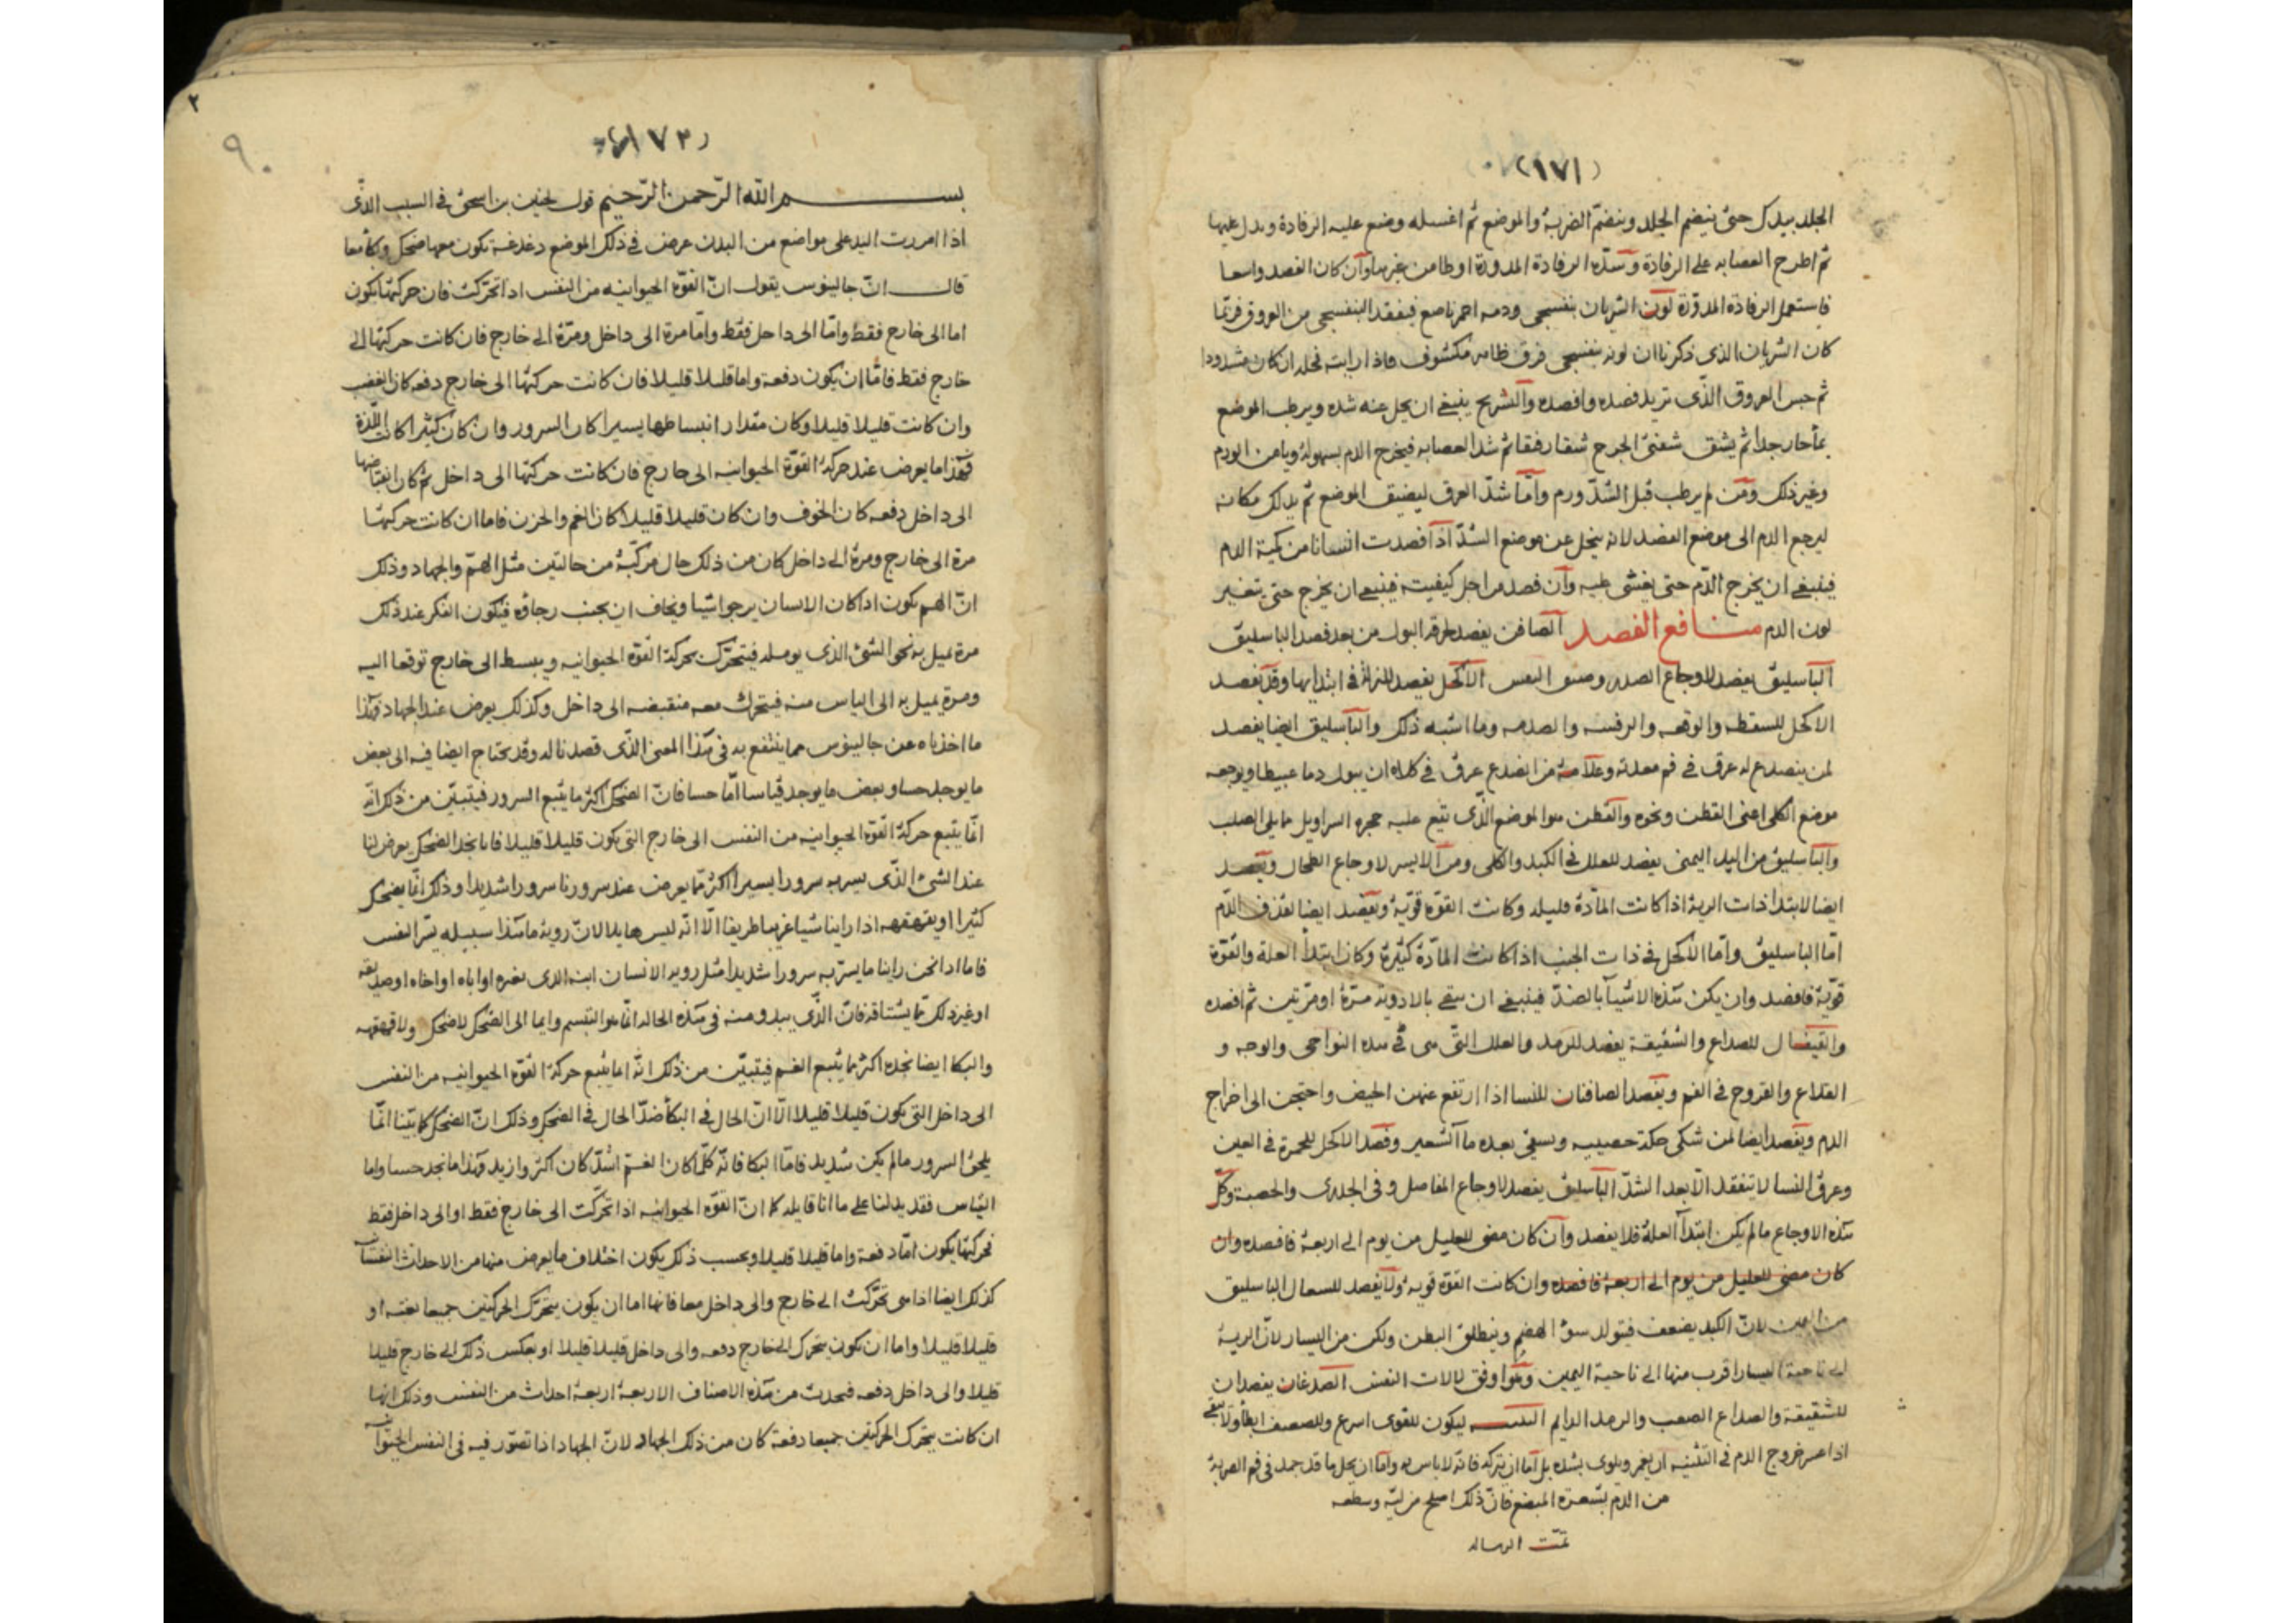 (١٧١)
الجلد بيدك حتى ينضم الجلد وينضم الضربة والموضع ثم اغسله وضع عليه الرفادة وبدل عليها
ثم اطرح العصابه على الرفادة وشده الرفادة المدورة او طامن غيرها وان كان الفصد واسعا
فاستعمل الرفادة المدورة لون الشريان بنفسجى ودمه احمر ناصع فيفقد البنفسجى من العروق فربما
كان الشريان الذى ذكرنا ان لونه بنفسجى فرق ظاهر مكشوف فاذا رايته فحله ان كان مشدودا
ثم حبس العروق الذى تريد فصده وافصده والتشريح ينبغى ان يحل عنه شده ويرطب الموضع
بماء حار جدا ثم يشق شفتى الجرح شقا رفقا ثم شد العصابه فيخرج الدم بسهولة ويامن الورم
وغير ذلك ومن لم يرطب قبل الشد ورم واما شد العرق ليضيق الموضع ثم يدلك مكانه
ليرجع الدم الى موضع الفصد لانه ينحل عن موضع الشد اذا فصدت انسانا من كمية الدم
فينبغى ان يخرج الدم حتى يغشى عليه وان فصد من اجل كيفيته فينبغى ان يخرج حتى يتغير
لون الدم منافع الفصد الصافن يفصد لحرقه البول من بعد فصد الباسليق
الباسليق يفصد لاوجاع الصدر وضيق النفس الاكحل يفصد للنزلة فى ابتدايها وقد يفصد
الاكحل للسقطه والوقعه والرفسه والصدمه وما اشبه ذلك والباسليق ايضا يفصد
لمن ينصدع له عرق فى فم معدته وعلامة من انصدع عرق فى كلاه ان يبول دما عبيطا ويوجعه
موضع الكلى اعنى القطن ونحوه والقطن هو الموضع الذى تقع عليه حجزه السراويل مما يلى الصلب
والباسليق من اليد اليمنى يفصد للعلل فى الكبد والكلى ومن الايسر لاوجاع الطحال ويفصد
ايضا لابتدا ذات الرية اذا كانت المادة قليله وكانت القوة قوية ويفصد ايضا لقذف الدم
اما الباسليق واما الاكحل فى ذات الجنب اذا كانت المادة كثيرة وكان ابتدأ العلة والقوة
قوية فافصد وان يكن هذه الاشيآ بالضد فينبغى ان سقى بالادوية مرة او مرتين ثم افصده
والقيفال للصداع والشقيقة يفصد للرمد والعلل التى هى فى هذه النواحى والوجه و
القلاع والقروح فى الفم ويفصد الصافنان للنسا اذا ارتفع عنهن الحيض واحتجن الى اخراج
الدم ويفصد ايضا لمن شكى حكة خصييه ويسقى بعده مآ الشعير وفصد الاكحل للحمرة فى العين
وعرق النسا لا يتفقد الا بعد الشد الباسليق يفصد لاوجاع المفاصل وفى الجدرى والحصبة وكل
هذه الاوجاع ما لم يكن ابتدآ العلة فلا يفصد وان كان مضى للعليل من يوم الى اربعة فافصده وان
كان مضى للعليل من يوم الى اربعة فافصده وان كانت القوة قويه ولا يفصد للسعال الباسليق
من اليمين لان الكبد يضعف فيتولد سؤ الهضم وينطلق البطن ولكن من اليسار لان الرية
الى ناحية اليسار اقرب منها الى ناحية اليمين وهو اوفق لالات النفس الصدغان يفصدان
للشقيقة والصداع الصعب والرمد الدايم التثنيه ليكون للقوى اسرع وللضعيف ابطأ ولا ينبغى
اذا عسر خروج الدم فى التثنيه ان يغمز ويلوى بشده بل اما ان يتركه فانه لا باس به واما ان يحل ما قد جمد فى فم الضربة
من الدم بشعرة المبضع فان ذلك اصلح من ليه وسطعه
تمت الرساله
٢
٩٠
(١٧٢)
بسم الله الرحمن الرحيم قول لحنين بن اسحق فى السبب الذى
اذا امررت اليد على مواضع من البدن عرض فى ذلك الموضع دغدغة يكون معها ضحك وبكا معا
قال ان جالينوس يقول ان القوة الحيوانيه من النفس اذا تحركت فان حركتها يكون
اما الى خارج فقط واما الى داخل فقط واما مرة الى داخل ومرة الى خارج فان كانت حركتها الى
خارج فقط فاما ان يكون دفعة واما قليلا قليلا فان كانت حركتها الى خارج دفعه كان الغضب
وان كانت قليلا قليلا وكان مقدار انبساطها يسيرا كان السرور وان كان كثيرا كانت اللذة
فهذا ما يعرض عند حركة القوة الحيوانيه الى خارج فان كانت حركتها الى داخل ثم كان انقباضها
الى داخل دفعه كان الخوف وان كان قليلا قليلا كان الغم والحزن فاما ان كانت حركتها
مرة الى خارج ومرة الى داخل كان من ذلك حال مركبة من حالتين مثل الهم والجهاد وذلك
ان الهم يكون اذا كان الانسان يرجوا شيا ويخاف ان يخيب رجاؤه فيكون الفكر عند ذلك
مرة يميل به نحو الشئ الذى يومله فيتحرك بحركة القوة الحيوانيه ويبسط الى خارج توقعا اليه
ومرة يميل به الى الياس منه فيتحرك معه منقبضه الى داخل وكذلك يعرض عند الجهاد فهذا
ما اخذناه عن جالينوس مما ينتفع به فى هذا المعنى الذى قصدنا له وقد يحتاج ايضا فيه الى بعض
ما يوجد حسا وبعض ما يوجد قياسا اما حسا فان الضحك اكثر ما يتبع السرور فيتبين من ذلك انه
انما يتبع حركة القوة الحيوانيه من النفس الى خارج التى يكون قليلا قليلا فانا نجد الضحك يعرض لنا
عند الشئ الذى يسر به سرورا يسيرا اكثر مما يعرض عند سرورنا سرورا شديدا وذلك انما يضحك
كثيرا او يقهقهه اذا راينا شيا غريبا طريفا الا انه ليس هايلا لان روية ما هذا سبيله يسر النفس
فاما اذا نحن راينا ما يسر به سرورا شديدا مثل روية الانسان ابنه الذى يعزه او اباه او اخاه او صديقه
او غير ذلك مما يشتاقه فان الذى يبدو منه فى هذه الحاله انما هو التبسم وايما الى الضحك لا ضحك ولا قهقهه
والبكا ايضا نجده اكثر ما يتبع الغم فيتبين من ذلك انه انما يتبع حركة القوة الحيوانيه من النفس
الى داخل التى يكون قليلا قليلا الا ان الحال فى البكأ ضد الحال فى الضحك وذلك ان الضحك كما بينا انما
يلحق السرور ما لم يكن شديد فاما البكا فانه كلما كان الغم اشد كان اكثر وازيد فهذا ما نجد حسا واما
القياس فقد يدلنا على ما انا قايله كما ان القوة الحيوانيه اذا تحركت الى خارج فقط او الى داخل فقط
فحركتها يكون اما دفعة واما قليلا قليلا وبحسب ذلك يكون اختلاف ما يعرض منها من الاحداث النفسانيه
كذلك ايضا اذا هى تحركت الى خارج والى داخل معا فانها اما ان يكون يتحرك الحركتين جميعا بغته او
قليلا قليلا واما ان يكون يتحرك الى خارج دفعه والى داخل قليلا قليلا او بعكس ذلك الى خارج قليلا
قليلا والى داخل دفعه فيحدث من هذه الاصناف الاربعة اربعة احداث من النفس وذلك انها
ان كانت يتحرك الحركتين جميعا دفعة كان من ذلك الجهاد لان الجهاد اذا تصور فيه فى النفس الحيوانيه